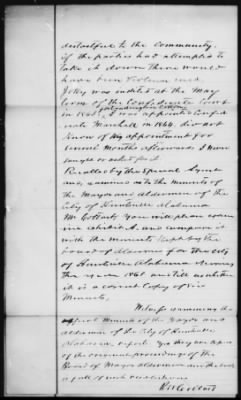 distasteful to the Community.
if the parties had attempted to
take it down there would
have been violence used.
Joby was indicted at the May
term of the Confederate Court
in 1863. I was appointed Confed-
erate Marshall in 1864. did not
know of my appointment for
several months afterwards I never
sought or asked for it.
Recalled by the Special
Commr. examine as to the minutes of
the Mayor and Aldermen of the
City of Huntsville Alabama
Mr Coltart, you will please exam-
ine exhibit A. and compare it
with the minutes kept by the
board of Aldermen for the City
of Huntsville Alabama during
the year 1861 and tell whether
it is a correct Copy of Said
Minutes.
Witness examining the
official minutes of the Mayor and
Aldermen of the City of Huntsville
Alabama replied. Yes they are copies
of the original proceedings of the
Board of Mayor Aldermen and the book
is full of such resolutions